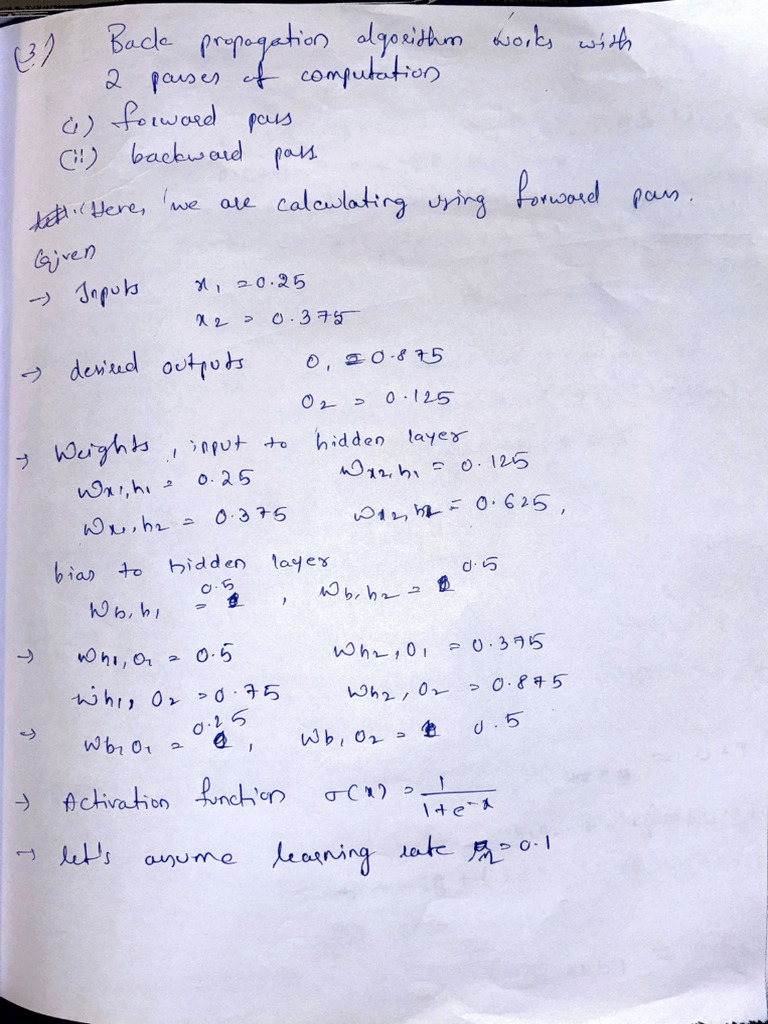 (3) Back propagation algorithm works with
2 passes of computation
(i) forward pass
(ii) backward pass.
Here, we are calculating using forward pass.
Given
→ Inputs x₁ = 0.25
x₂ = 0.375
→ desired outputs O₁ = 0.875
O₂ = 0.125
→ Weights, input to hidden layer
Wx₁,h₁ = 0.25 Wx₂,h₁ = 0.125
Wx₁,h₂ = 0.375 Wx₂,h₂ = 0.625,
bias to hidden layer
Wb,h₁ = 0.5, Wb,h₂ = 0.5
→ Wh₁,O₁ = 0.5 Wh₂,O₁ = 0.375
Wh₁,O₂ = 0.75 Wh₂,O₂ = 0.875
→ Wb,O₁ = 0.25, Wb,O₂ = 0.5
→ Activation function σ(x) = 1/(1+e⁻ˣ)
→ let's assume learning rate η = 0.1